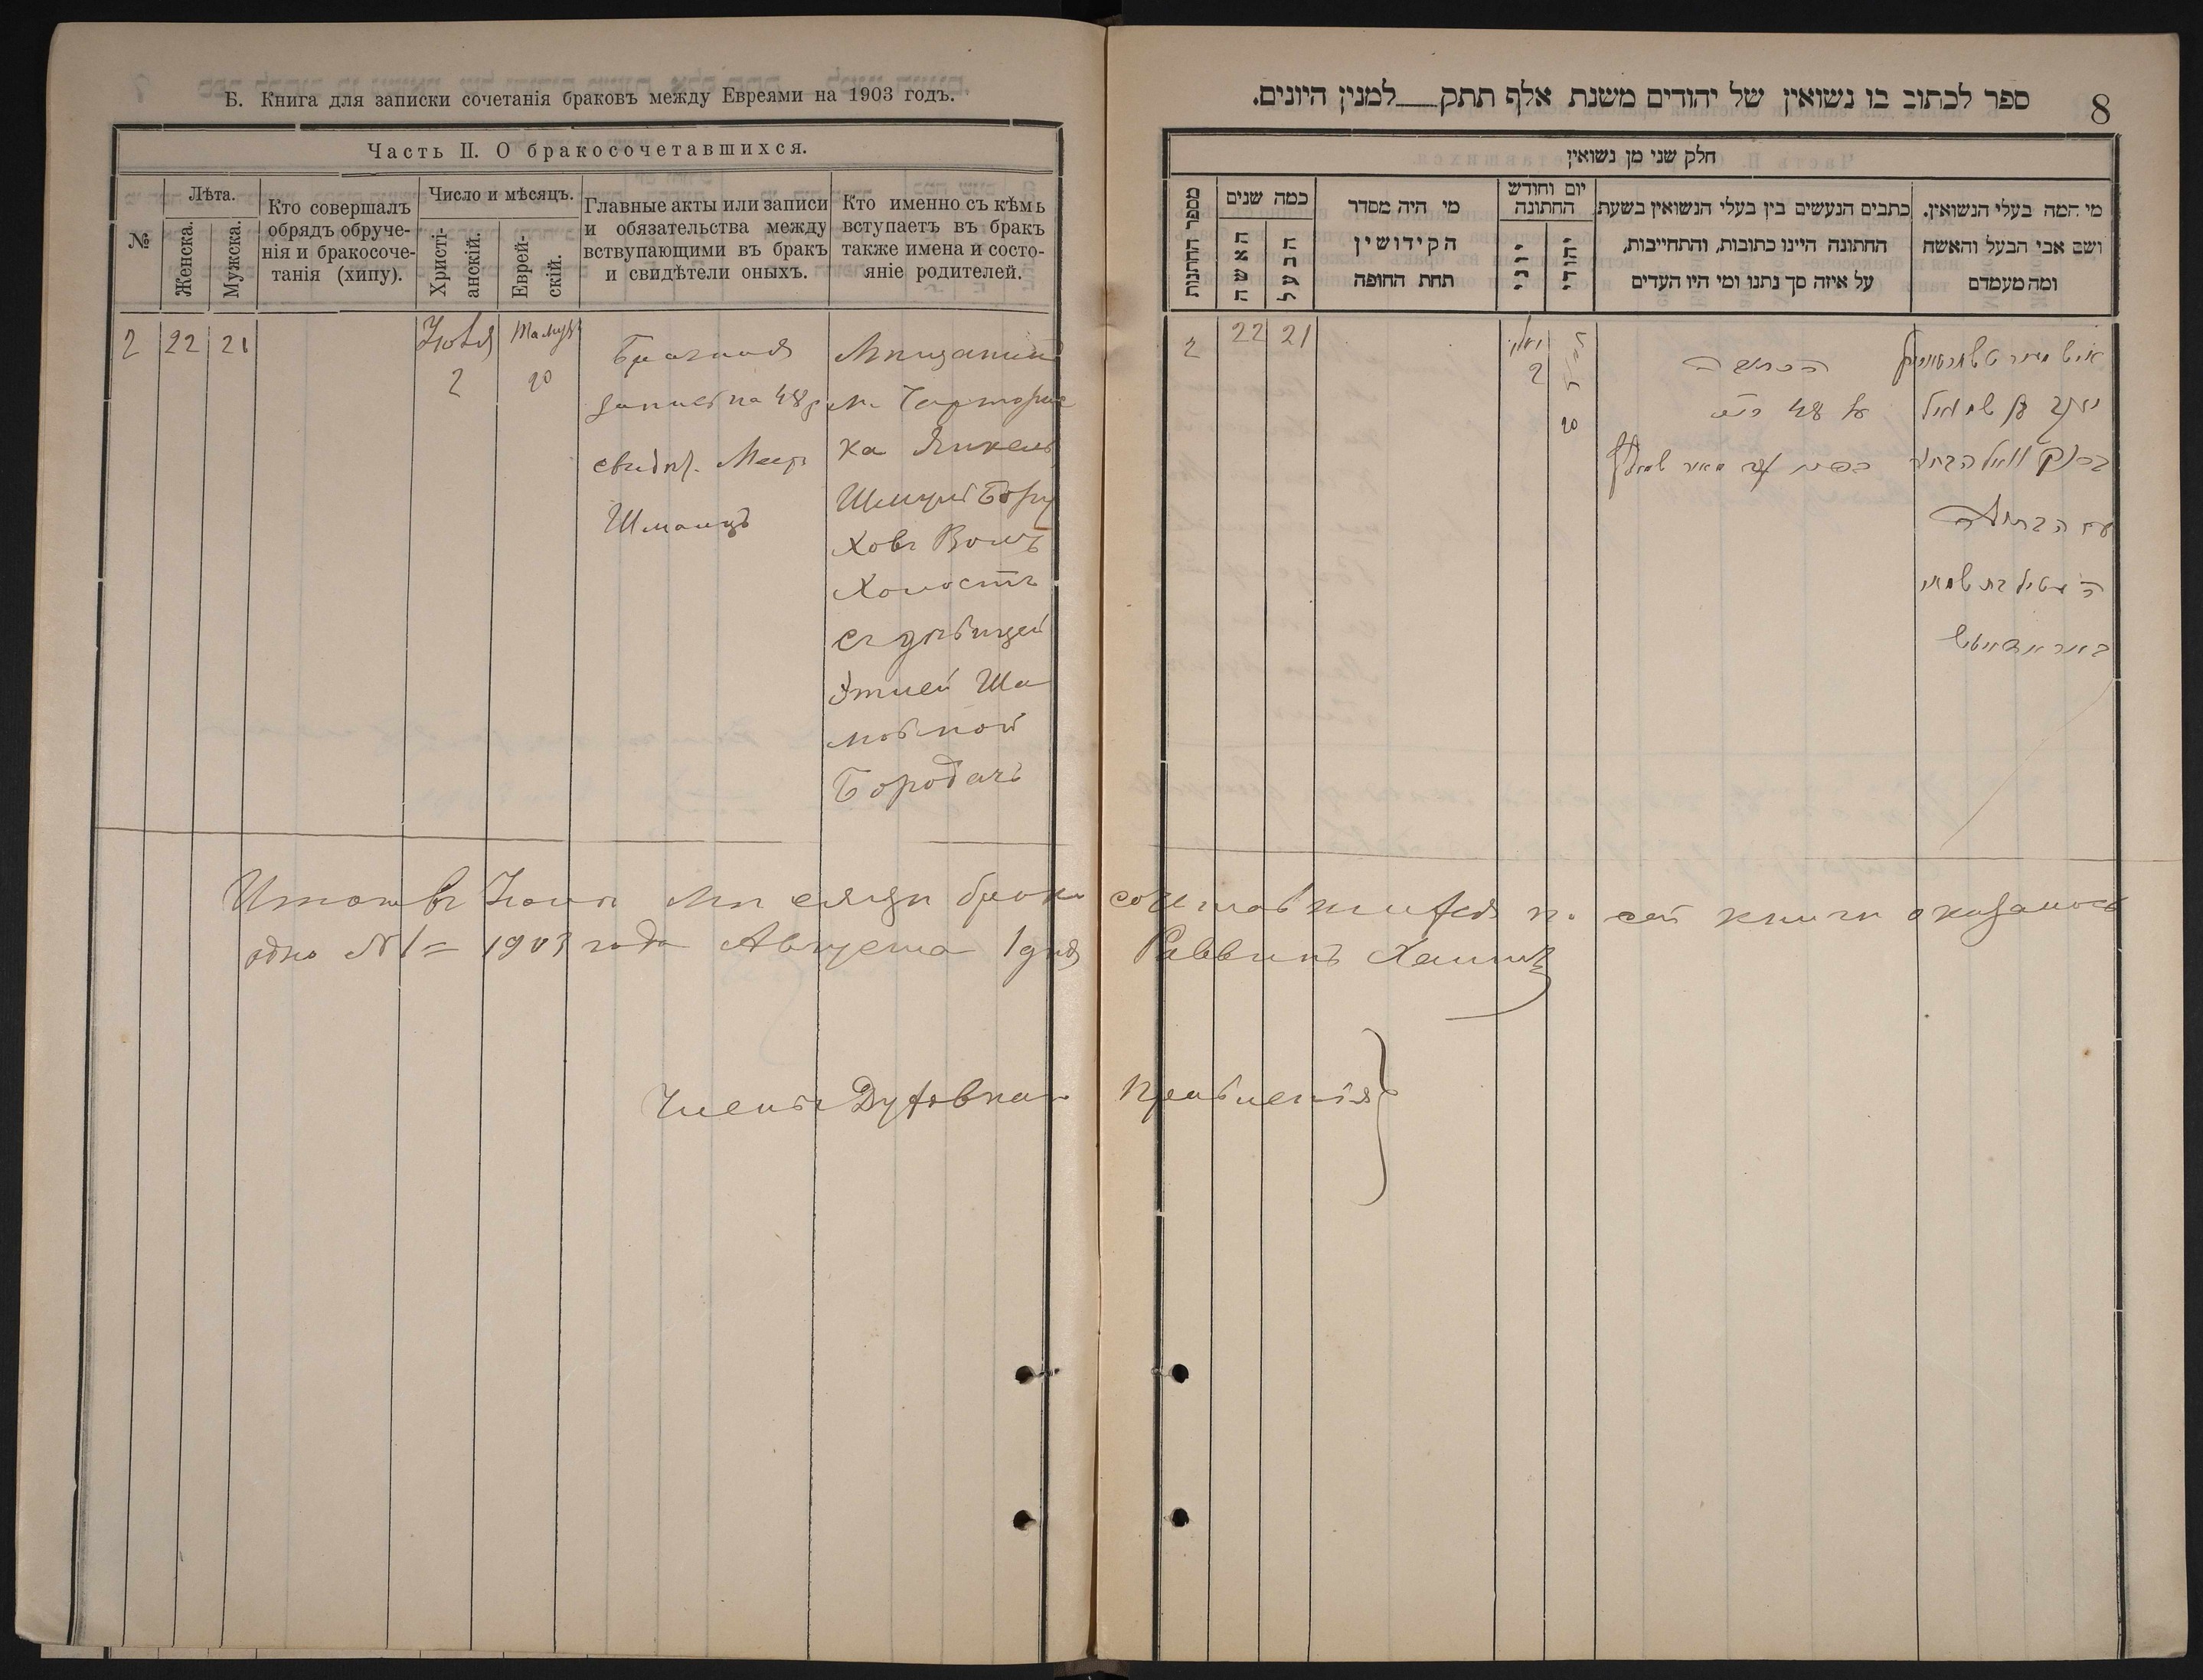 Б. Книга для записки сочетанія браковъ между Евреями на 1903 годъ.
Часть II. О бракосочетавшихся.
№
Лѣта.
Женска.
Мужска.
Кто совершалъ
обрядъ обруче-
нія и бракосоче-
танія (хипу).
Число и мѣсяцъ.
Христі-
анскій.
Еврей-
скій.
Главные акты или записи
и обязательства между
вствупающими въ бракъ
и свидѣтели оныхъ.
Кто именно съ кѣмъ
вступаетъ въ бракъ
также имена и состо-
яніе родителей.
2 22 21
Іюля
2
Тамузъ
20
Брачная
запись на 48 р
свидѣт. Меер
Шмаицъ
Мищанинъ
м. Чарторис
ка Янкель
Шмуил Бору
ховъ Волъ
Холостъ
съ дѣвицей
Этлей Ша
мовной
Бородачъ
Итого въ Іюлѣ Мѣсяцѣ брако сочетавшихся по сей книги оказалось
одно №1= 1903 года Августа 1 дня Раввинъ
Члены Духовнаго Правленія
8
ספר לכתוב בו נשואין של יהודים משנת אלף תתק למנין היונים.
חלק שני מן נשואין
מספר החתונות
כמה שנים
האשה
הבעל
מי היה מסדר
הקידושין
תחת החופה
יום וחודש
החתונה
יווני
יהודי
כתבים הנעשים בין בעלי הנשואין בשעת
החתונה היינו כתובות, והתחייבות,
על איזה סך נתנו ומי היו העדים
מי המה בעלי הנשואין.
ושם אבי הבעל והאשה
ומה מעמדם
2 22 21
יולי
2
20
הכתובה
על 48
יעקב שמואל
הבחור
עם הבתולה